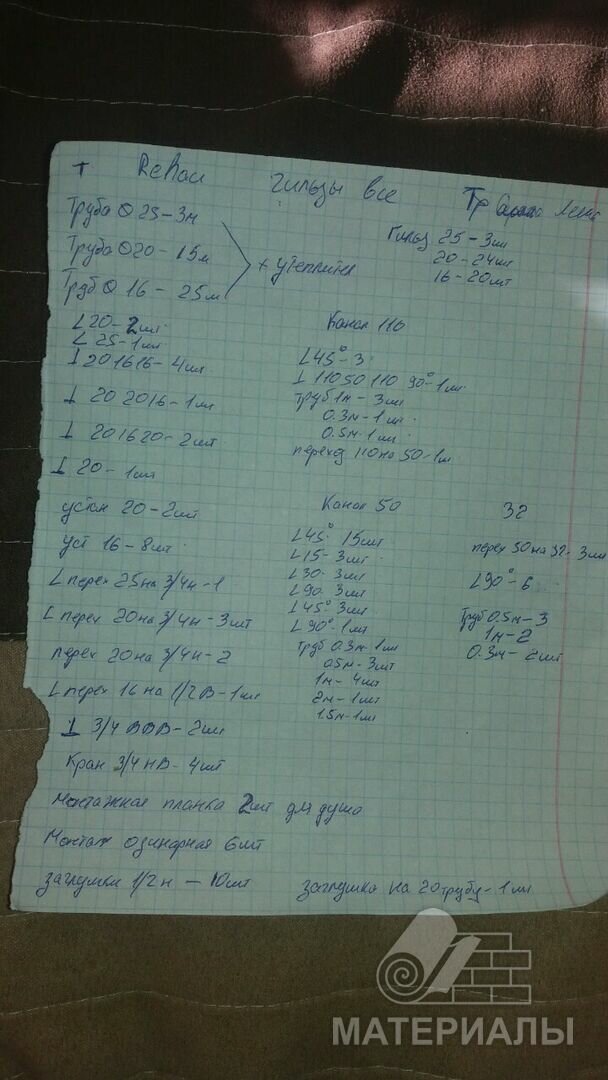 т Rehau гильзы все Тр Лека
Труба Ø 25-3м
Труба Ø20-15м
Труб Ø 16-25м
+ утеплител
Гильз 25-3шт
20-24шт
16-20шт
L20-2шт.
L 25-1шт
⊥ 201616-4шт
⊥ 202016-1шт
⊥ 201620-2шт
⊥ 20-1шт
устан 20-2шт
уст 16-8шт
L перех 25 на 3/4н-1
L перех 20 на 3/4н-3шт
перех 20 на 3/4н-2
L перех 16 на 1/2В-1шт
⊥ 3/4 ВВВ-2шт
Кран 3/4 НВ-4шт
Монтажная планка 2шт для душа
Монтаж одинарная 6шт
заглушки 1/2 н - 10шт
Канал 110
L45°-3
⊥ 11050110 90°-1шт
труб 1м-3шт
0.3м-1шт.
0.5м-1шт.
переход 110 на 50-1ш
Канал 50
L45° 15шт
L15-3шт
L30-3шт
L90-3шт
L45°-3шт
L90°-1шт
Труб 0.3м-1шт
0.5м-3шт
1м-4шт
2м-1шт
1.5м-1шт
32
перех 50 на 32-3шт
L90°-6
Труб 0.5м-3
1м-2
0.3м-2шт
заглушка на 20 трубу-1шт
МАТЕРИАЛЫ